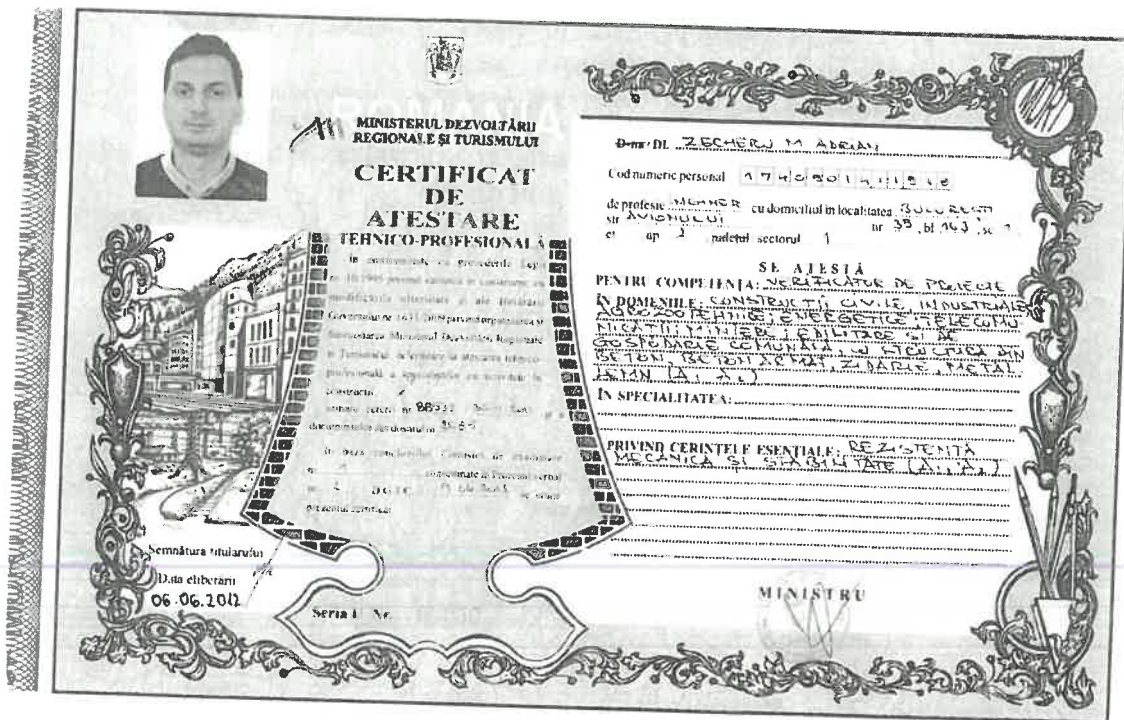 MINISTERUL DEZVOLTĂRII
REGIONALE ȘI TURISMULUI
CERTIFICAT
DE
ATESTARE
TEHNICO-PROFESIONALĂ
În conformitate cu prevederile Legii
nr. 10/1995 privind calitatea în construcții, cu
modificările ulterioare și ale Hotărârii
Guvernului nr. 1631/2009 privind organizarea și
funcționarea Ministerul Dezvoltării Regionale
și Turismului, referitoare la atestarea tehnico-
profesională a specialiștilor cu activitate în
construcții
urmare cererii nr.
documentelor din dosarul nr.
În baza concluziilor Comisiei de examinare
nr. consemnate în Procesul verbal
nr. 2 se emite
prezentul certificat
Semnătura titularului
Data eliberării
06.06.2012
Seria Nr.
D-na/Dl. ZECHERU M ADRIAN
Cod numeric personal
de profesie INGINER cu domiciliul în localitatea BUCUREȘTI
str AVIONULUI nr 39, bl
et ap 2 județul sectorul 1
SE ATESTĂ
PENTRU COMPETENȚA: VERIFICATOR DE PROIECTE
ÎN DOMENIILE: CONSTRUCȚII CIVILE INDUSTRIALE
AGROZOOTEHNICE, ENERGETICE, TELECOMU
NICAȚII, MINIERE, EDILITARE ȘI DE
GOSPODĂRIE COMUNALĂ, CU STRUCTURA DIN
BETON, BETON ARMAT, ZIDĂRIE, METAL,
LEMN (A1, A2)
ÎN SPECIALITATEA:
PRIVIND CERINȚELE ESENȚIALE: REZISTENȚĂ
MECANICĂ ȘI STABILITATE (A1, A2)
MINISTRU